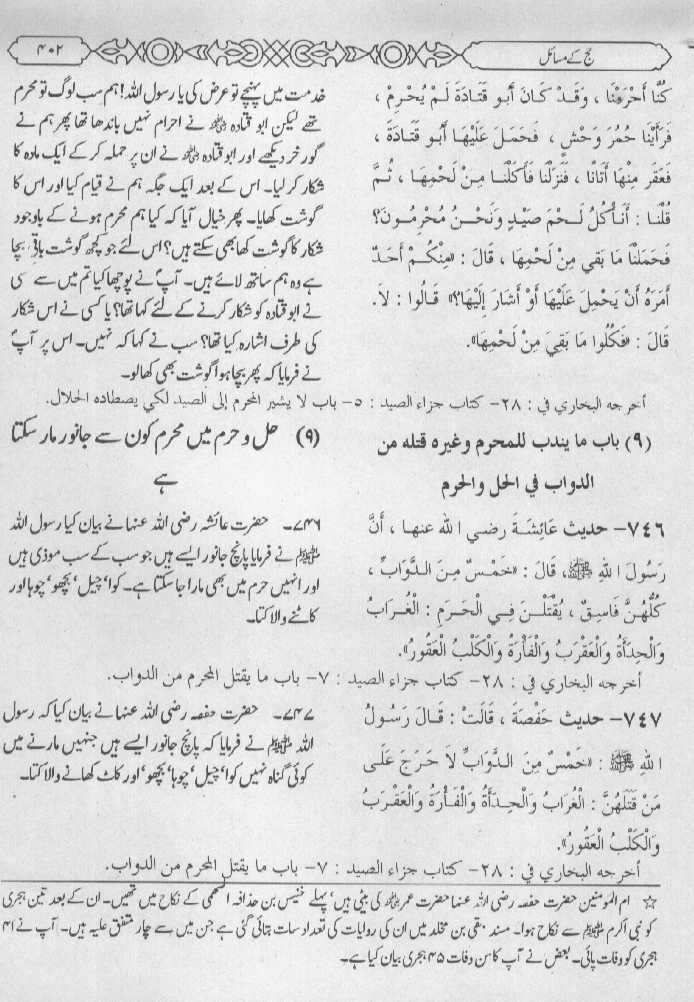 ۴۰۲
حج کے مسائل
كُنَّا أَحْرَمْنَا ، وَقَدْ كَانَ أَبُو قَتَادَةَ لَمْ يُحْرِمْ ،
فَرَأَيْنَا حُمُرَ وَحْشٍ ، فَحَمَلَ عَلَيْهَا أَبُو قَتَادَةَ ،
فَعَقَرَ مِنْهَا أَتَانًا ، فَنَزَلْنَا فَأَكَلْنَا مِنْ لَحْمِهَا ، ثُمَّ
قُلْنَا : أَنَأْكُلُ لَحْمَ صَيْدٍ وَنَحْنُ مُحْرِمُونَ؟
فَحَمَلْنَا مَا بَقِي مِنْ لَحْمِهَا ، قَالَ : «مِنْكُمْ أَحَدٌ
أَمَرَهُ أَنْ يَحْمِلَ عَلَيْهَا أَوْ أَشَارَ إِلَيْهَا؟» قَالُوا : لاَ.
قَالَ : «فَكُلُوا مَا بَقِيَ مِنْ لَحْمِهَا».
خدمت میں پہنچے تو عرض کی یا رسول اللہ! ہم سب لوگ تو محرم
تھے لیکن ابو قتادہ ؓ نے احرام نہیں باندھا تھا پھر ہم نے
گور خر دیکھے اور ابو قتادہ ؓ نے ان پر حملہ کر کے ایک مادہ کا
شکار کر لیا۔ اس کے بعد ایک جگہ ہم نے قیام کیا اور اس کا
گوشت کھایا۔ پھر خیال آیا کہ کیا ہم محرم ہونے کے باوجود
شکار کا گوشت کھا بھی سکتے ہیں؟ اس لئے جو کچھ گوشت باقی بچا
ہے وہ ہم ساتھ لائے ہیں۔ آپؐ نے پوچھا کیا تم میں سے کسی
نے ابو قتادہ کو شکار کرنے کے لئے کہا تھا؟ یا کسی نے اس شکار
کی طرف اشارہ کیا تھا؟ سب نے کہا کہ نہیں۔ اس پر آپؐ
نے فرمایا کہ پھر بچا ہوا گوشت بھی کھا لو۔
أخرجه البخاري في : ٢٨- كتاب جزاء الصيد : ٥- باب لا يشير المحرم إلى الصيد لكي يصطاده الحلال.
(٩) باب ما يندب للمحرم وغيره قتله من
الدواب في الحل والحرم
(۹) حل و حرم میں محرم کون سے جانور مار سکتا
ہے
٧٤٦- حديث عَائِشَةَ رضي الله عنها ، أَنَّ
رَسُولَ اللهِ ﷺ، قَالَ : «خَمْسٌ مِنَ الدَّوَابِّ ،
كُلُّهُنَّ فَاسِقٌ ، يُقْتَلْنَ فِي الْحَرَمِ : الْغُرَابُ
وَالْحِدَأَةُ وَالْعَقْرَبُ وَالْفَأْرَةُ وَالْكَلْبُ الْعَقُورُ».
۷۴۶۔ حضرت عائشہ رضی اللہ عنہا نے بیان کیا رسول اللہ
ﷺ نے فرمایا پانچ جانور ایسے ہیں جو سب کے سب موذی ہیں
اور انہیں حرم میں بھی مارا جا سکتا ہے۔ کوا‘ چیل‘ بچھو‘ چوہا اور
کاٹنے والا کتا۔
أخرجه البخاري في : ٢٨- كتاب جزاء الصيد : ٧- باب ما يقتل المحرم من الدواب.
٧٤٧- حديث حَفْصَةَ ، قَالَتْ : قَالَ رَسُولُ
اللهِ ﷺ : «خَمْسٌ مِنَ الدَّوَابِّ لاَ حَرَجَ عَلَى
مَنْ قَتَلَهُنَّ : الْغُرَابُ وَالْحِدَأَةُ وَالْفَأْرَةُ وَالْعَقْرَبُ
وَالْكَلْبُ الْعَقُورُ».
۷۴۷۔ حضرت حفصہ رضی اللہ عنہا نے بیان کیا کہ رسول
اللہ ﷺ نے فرمایا کہ پانچ جانور ایسے ہیں جنہیں مارنے میں
کوئی گناہ نہیں کوا‘ چیل‘ چوہا‘ بچھو‘ اور کاٹ کھانے والا کتا۔
أخرجه البخاري في : ٢٨- كتاب جزاء الصيد : ٧- باب ما يقتل المحرم من الدواب.
☆ ام المومنین حضرت حفصہ رضی اللہ عنہا حضرت عمر ؓ کی بیٹی ہیں‘ پہلے خنیس بن حذافہ السہمی کے نکاح میں تھیں۔ ان کے بعد تین ہجری
کو نبی اکرم ﷺ سے نکاح ہوا۔ مسند بقی بن مخلد میں ان کی روایات کی تعداد سات بتائی گئی ہے جن میں سے چار متفق علیہ ہیں۔ آپ نے ۴۱
ہجری کو وفات پائی۔ بعض نے آپ کا سن وفات ۴۵ ہجری بیان کیا ہے۔